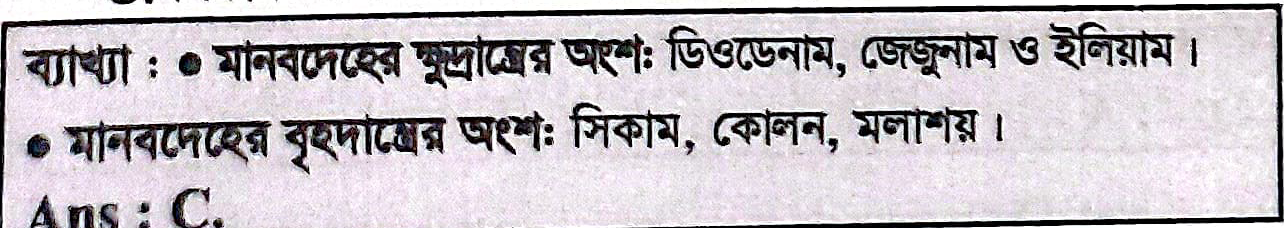 ব্যাখ্যা : ● মানবদেহের ক্ষুদ্রান্ত্রের অংশঃ ডিওডেনাম, জেজুনাম ও ইলিয়াম ।
● মানবদেহের বৃহদান্ত্রের অংশঃ সিকাম, কোলন, মলাশয় ।
Ans : C.